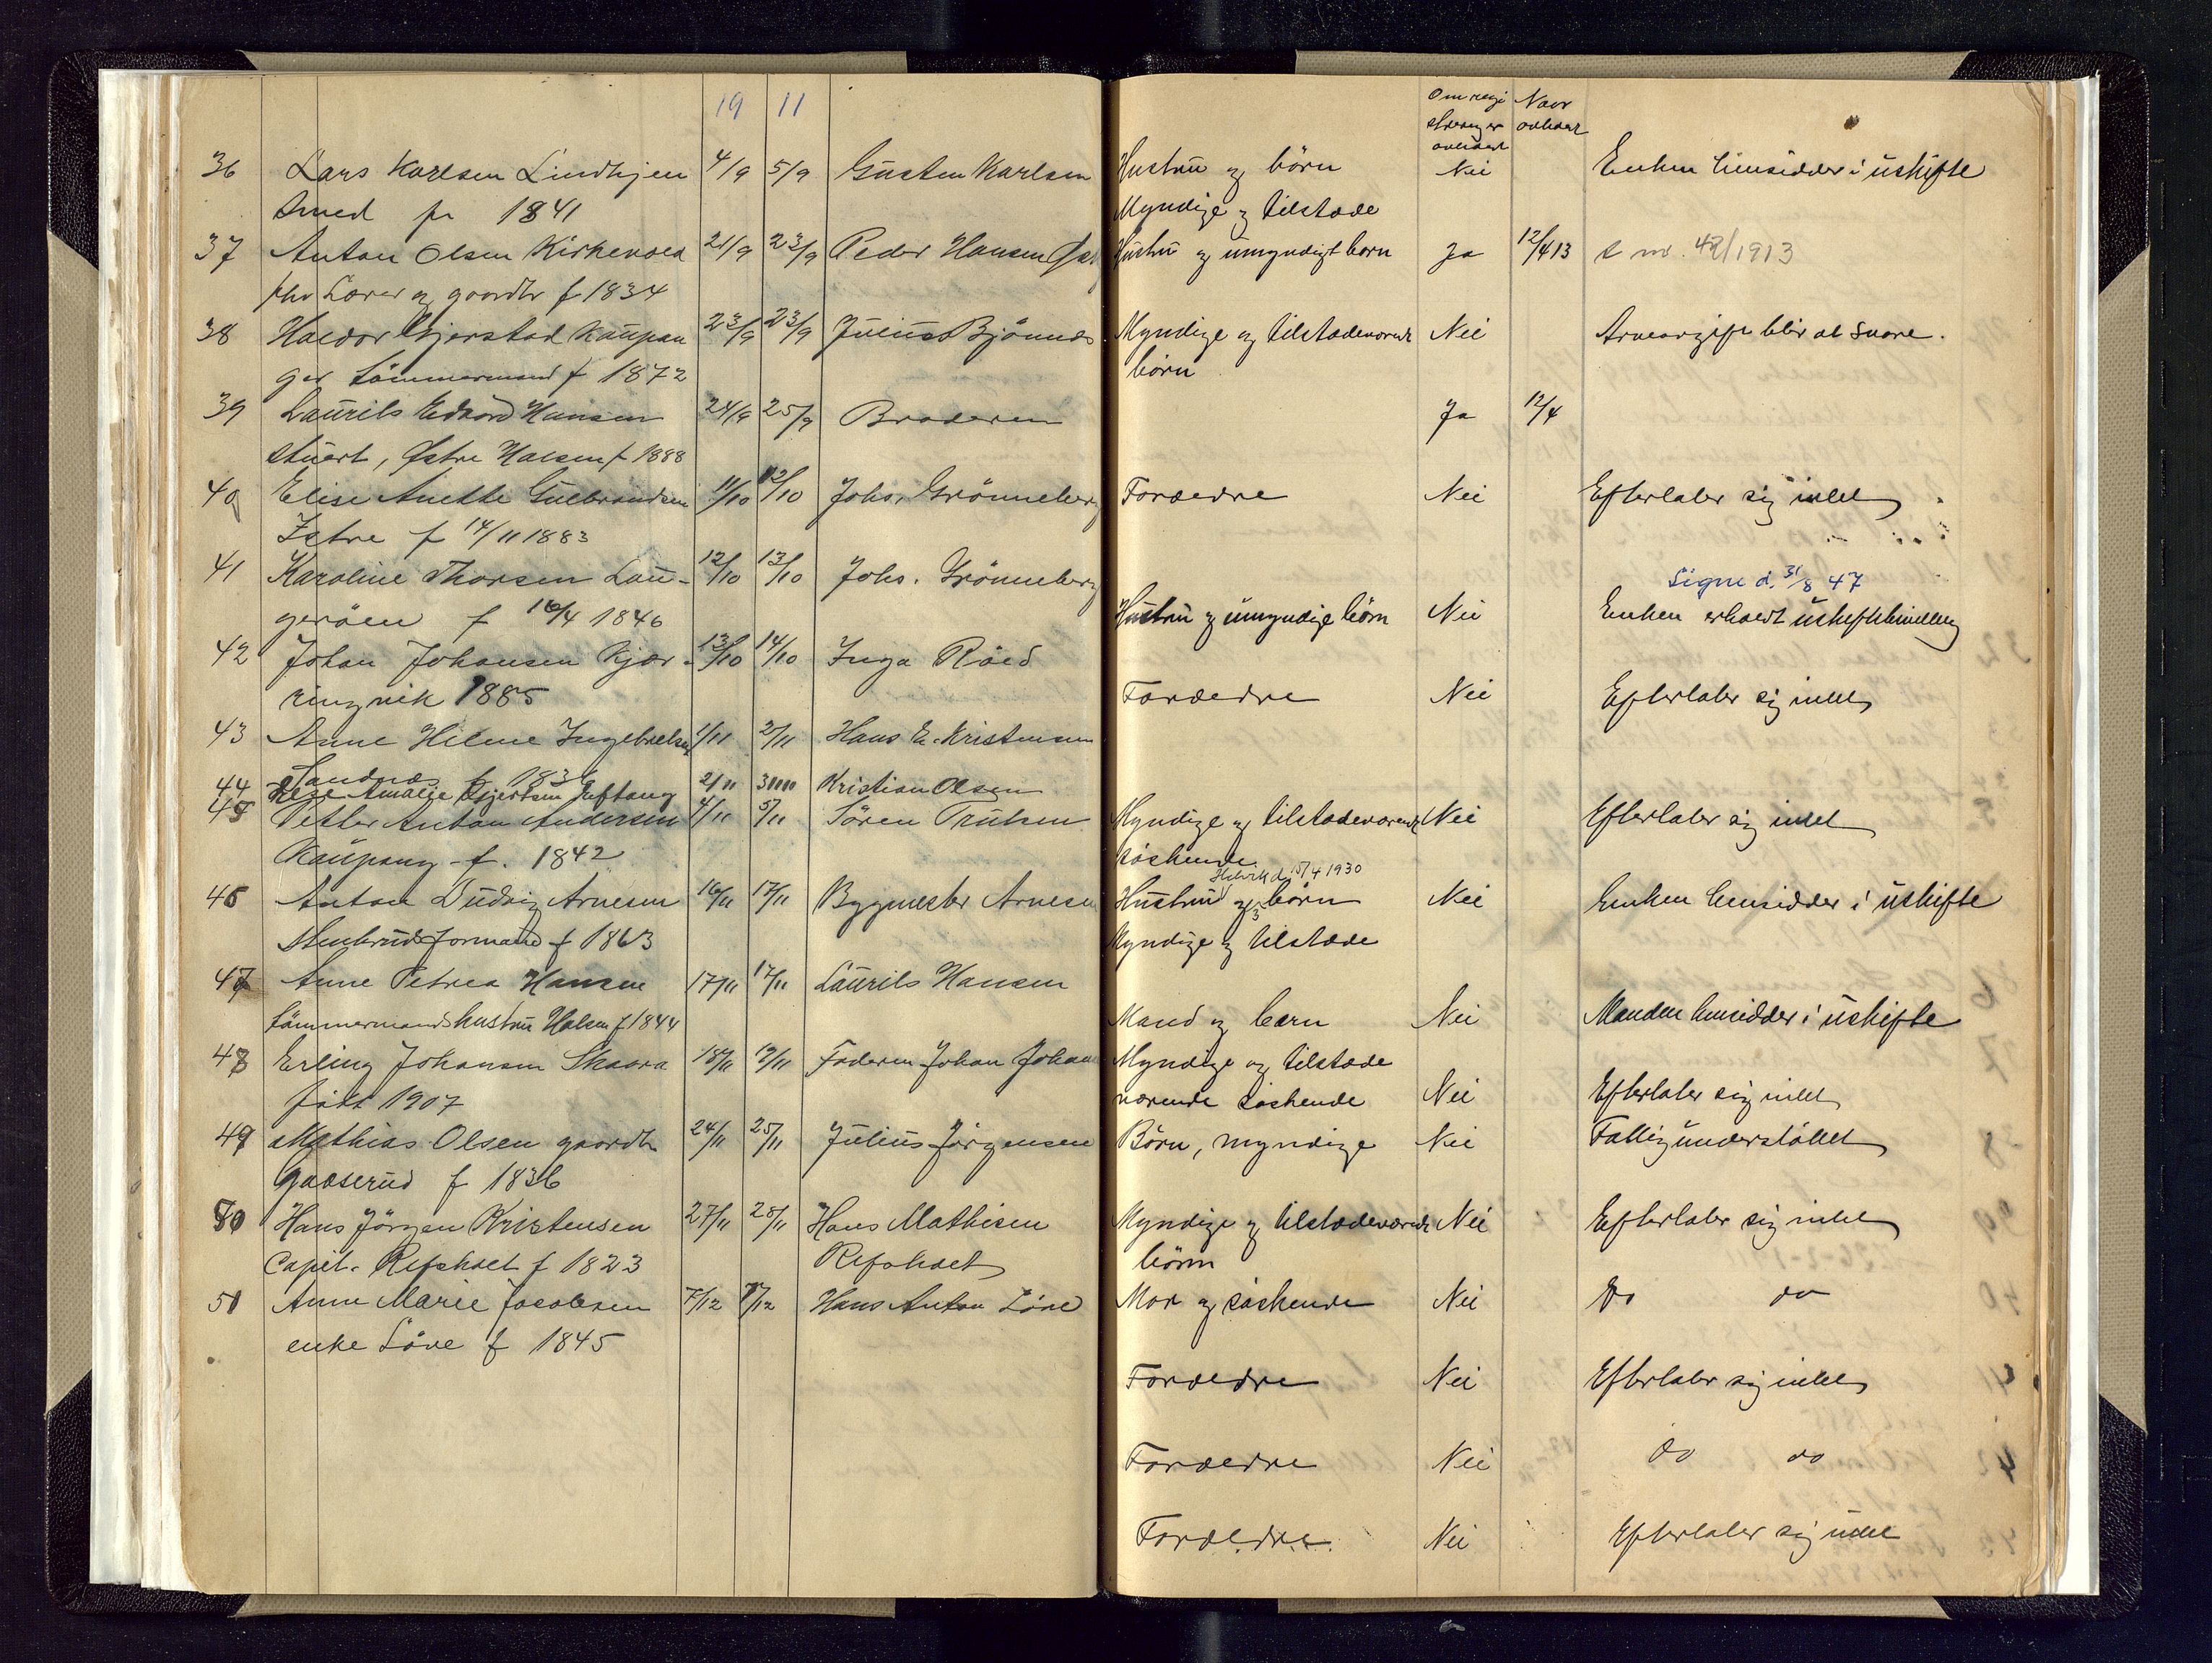 19 11
36 Lars Karlsen Lindhjem 4/9 5/9 Gusten Karlsen
Smed f 1841
37 Anton Olsen Kirkevold 21/9 23/9 Peder Hansen
fhv Lærer og gaardbr f 1834
38 Haldor Gjerstad Kaupan 23/9 23/9 Julius Bjönnes
ger Tömmermand f 1872
39 Laurits Edvard Hansen 24/9 25/9 Broderen
Stuert, Østre Halsen f 1888
40 Elise Anette Gulbrandsen 11/10 12/10 Johs. Grönneberg
Istre f 14/11 1883
41 Karoline Thorsen Lau- 12/10 13/10 Johs. Grönneberg
geröen f 16/4 1846
42 Johan Johansen Kjær- 13/10 14/10 Inga Röed
ringvik 1885
43 Anne Helene Ingebretsen 1/11 2/11 Hans E. Kristensen
Sandnæs f 1836
44 Amalie Gjertsen Jeftang 2/11 3/11 Kristian Olsen
45 Petter Anton Andersen 4/11 5/11 Sören Trulsen
Kaupang f. 1842
46 Anton Ludvig Arnesen 16/11 17/11 Bygmester Arnesen
Stenbrudsformand f 1863
47 Anne Petrea Hansen 17/11 17/11 Laurits Hansen
Tömmermandshustru Halsen f 1844
48 Erling Johansen Skaara 18/11 19/11 Faderen Johan Johan
født 1907
49 Mathias Olsen gaardbr 24/11 25/11 Julius Jörgensen
Gaaserud f 1836
50 Hans Jörgen Kristensen 27/11 28/11 Hans Mathisen
Capit. Refsholt f 1823 Refsholt
51 Anne Marie Jacobsen 7/12 7/12 Hans Anton Löve
enke Löve f 1845
Om regi Naar
strering er avholdt
avholdt
Hustru og börn Nei Enken hensidder i uskifte
Myndige og tilstæde
Hustru og umyndigt barn Ja 12/4 13 s nr. 42/1913
Myndige og tilstædeværende Nei Arveavgift blir at svare.
börn
Ja 12/4
Forældre Nei Efterlater sig intet
Signe d. 31/8 47
Hustru og umyndige börn Nei Enken erholdt uskiftebevilling
Forældre Nei Efterlater sig intet
Myndige og tilstædeværende Nei Efterlater sig intet
söskende
d. 15/4 1930
Hustru og 3 börn Nei Enken hensidder i uskifte
Myndige og tilstæde
Mand og barn Nei Manden hensidder i uskifte
Myndige og tilstæde
værende söskende Nei Efterlater sig intet
Börn, myndige Nei Fattigunderstöttet
Myndige og tilstædeværende Nei Efterlater sig intet
börn
Mor og söskende Nei Do do
Forældre Nei Efterlater sig intet
Forældre Nei do do
Forældre Nei Efterlater sig intet